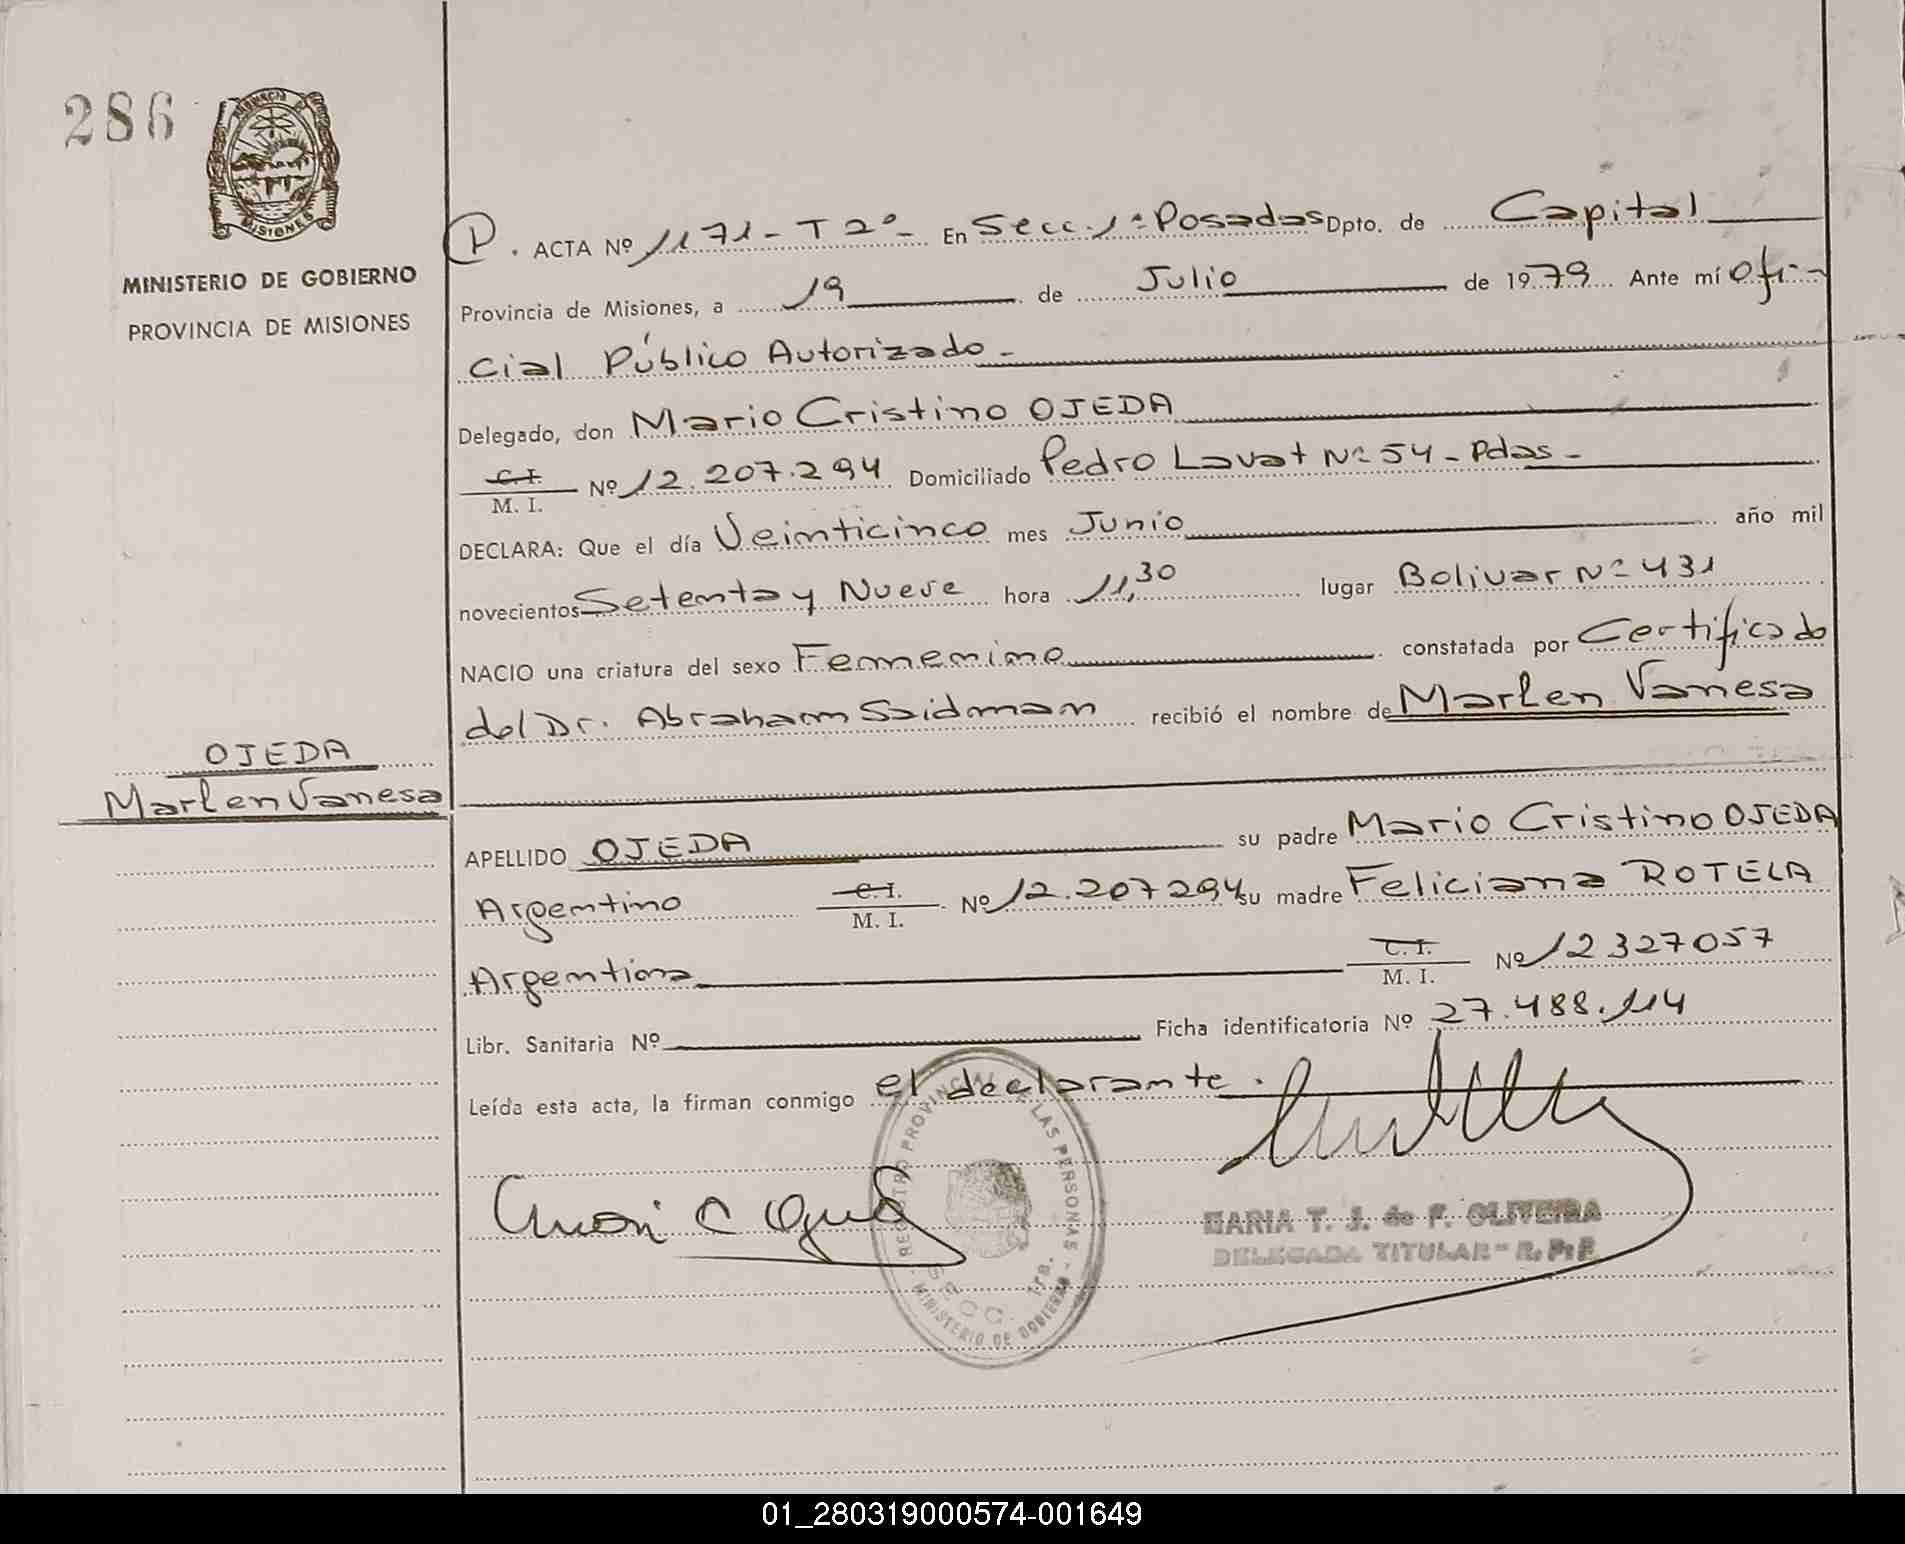 286
PROVINCIA DE
MISIONES
MINISTERIO DE GOBIERNO
PROVINCIA DE MISIONES
OJEDA
Marlen Vanesa
P. ACTA Nº 1171-T2º- En Secc. 1ª Posadas Dpto. de Capital
Provincia de Misiones, a 19 de Julio de 1979 Ante mí Ofi-
cial Público Autorizado-
Delegado, don Mario Cristino OJEDA
C.I.
M. I. Nº 12.207.294 Domiciliado Pedro Lavat Nº 54-Pdas-
DECLARA: Que el día Veinticinco mes Junio año mil
novecientos Setenta y Nueve hora 11,30 lugar Bolivar Nº 431
NACIO una criatura del sexo Femenino constatada por Certificado
del Dr. Abraham Saidman recibió el nombre de Marlen Vanesa
APELLIDO OJEDA su padre Mario Cristino OJEDA
Argentino C.I.
M. I. Nº 12.207294 su madre Feliciana ROTELA
Argentina C.I.
M. I. Nº 12327057
Libr. Sanitaria Nº Ficha identificatoria Nº 27.488.114
Leída esta acta, la firman conmigo el declarante.
REGISTRO PROVINCIAL DE LAS PERSONAS - MINISTERIO DE GOBIERNO
SECC. 1ra.
MARIA T. J. de F. OLIVEIRA
DELEGADA TITULAR - R. P. P.
01_280319000574-001649